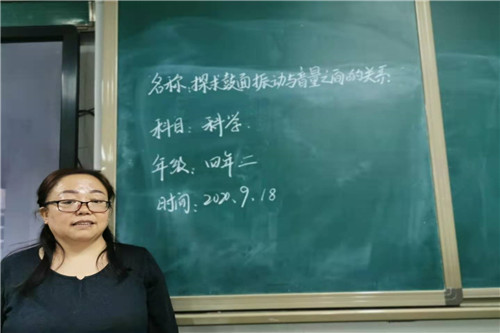 名称:探求鼓面振动与音量之间的关系.
科目:科学.
年级:四年二
时间:2020.9.18